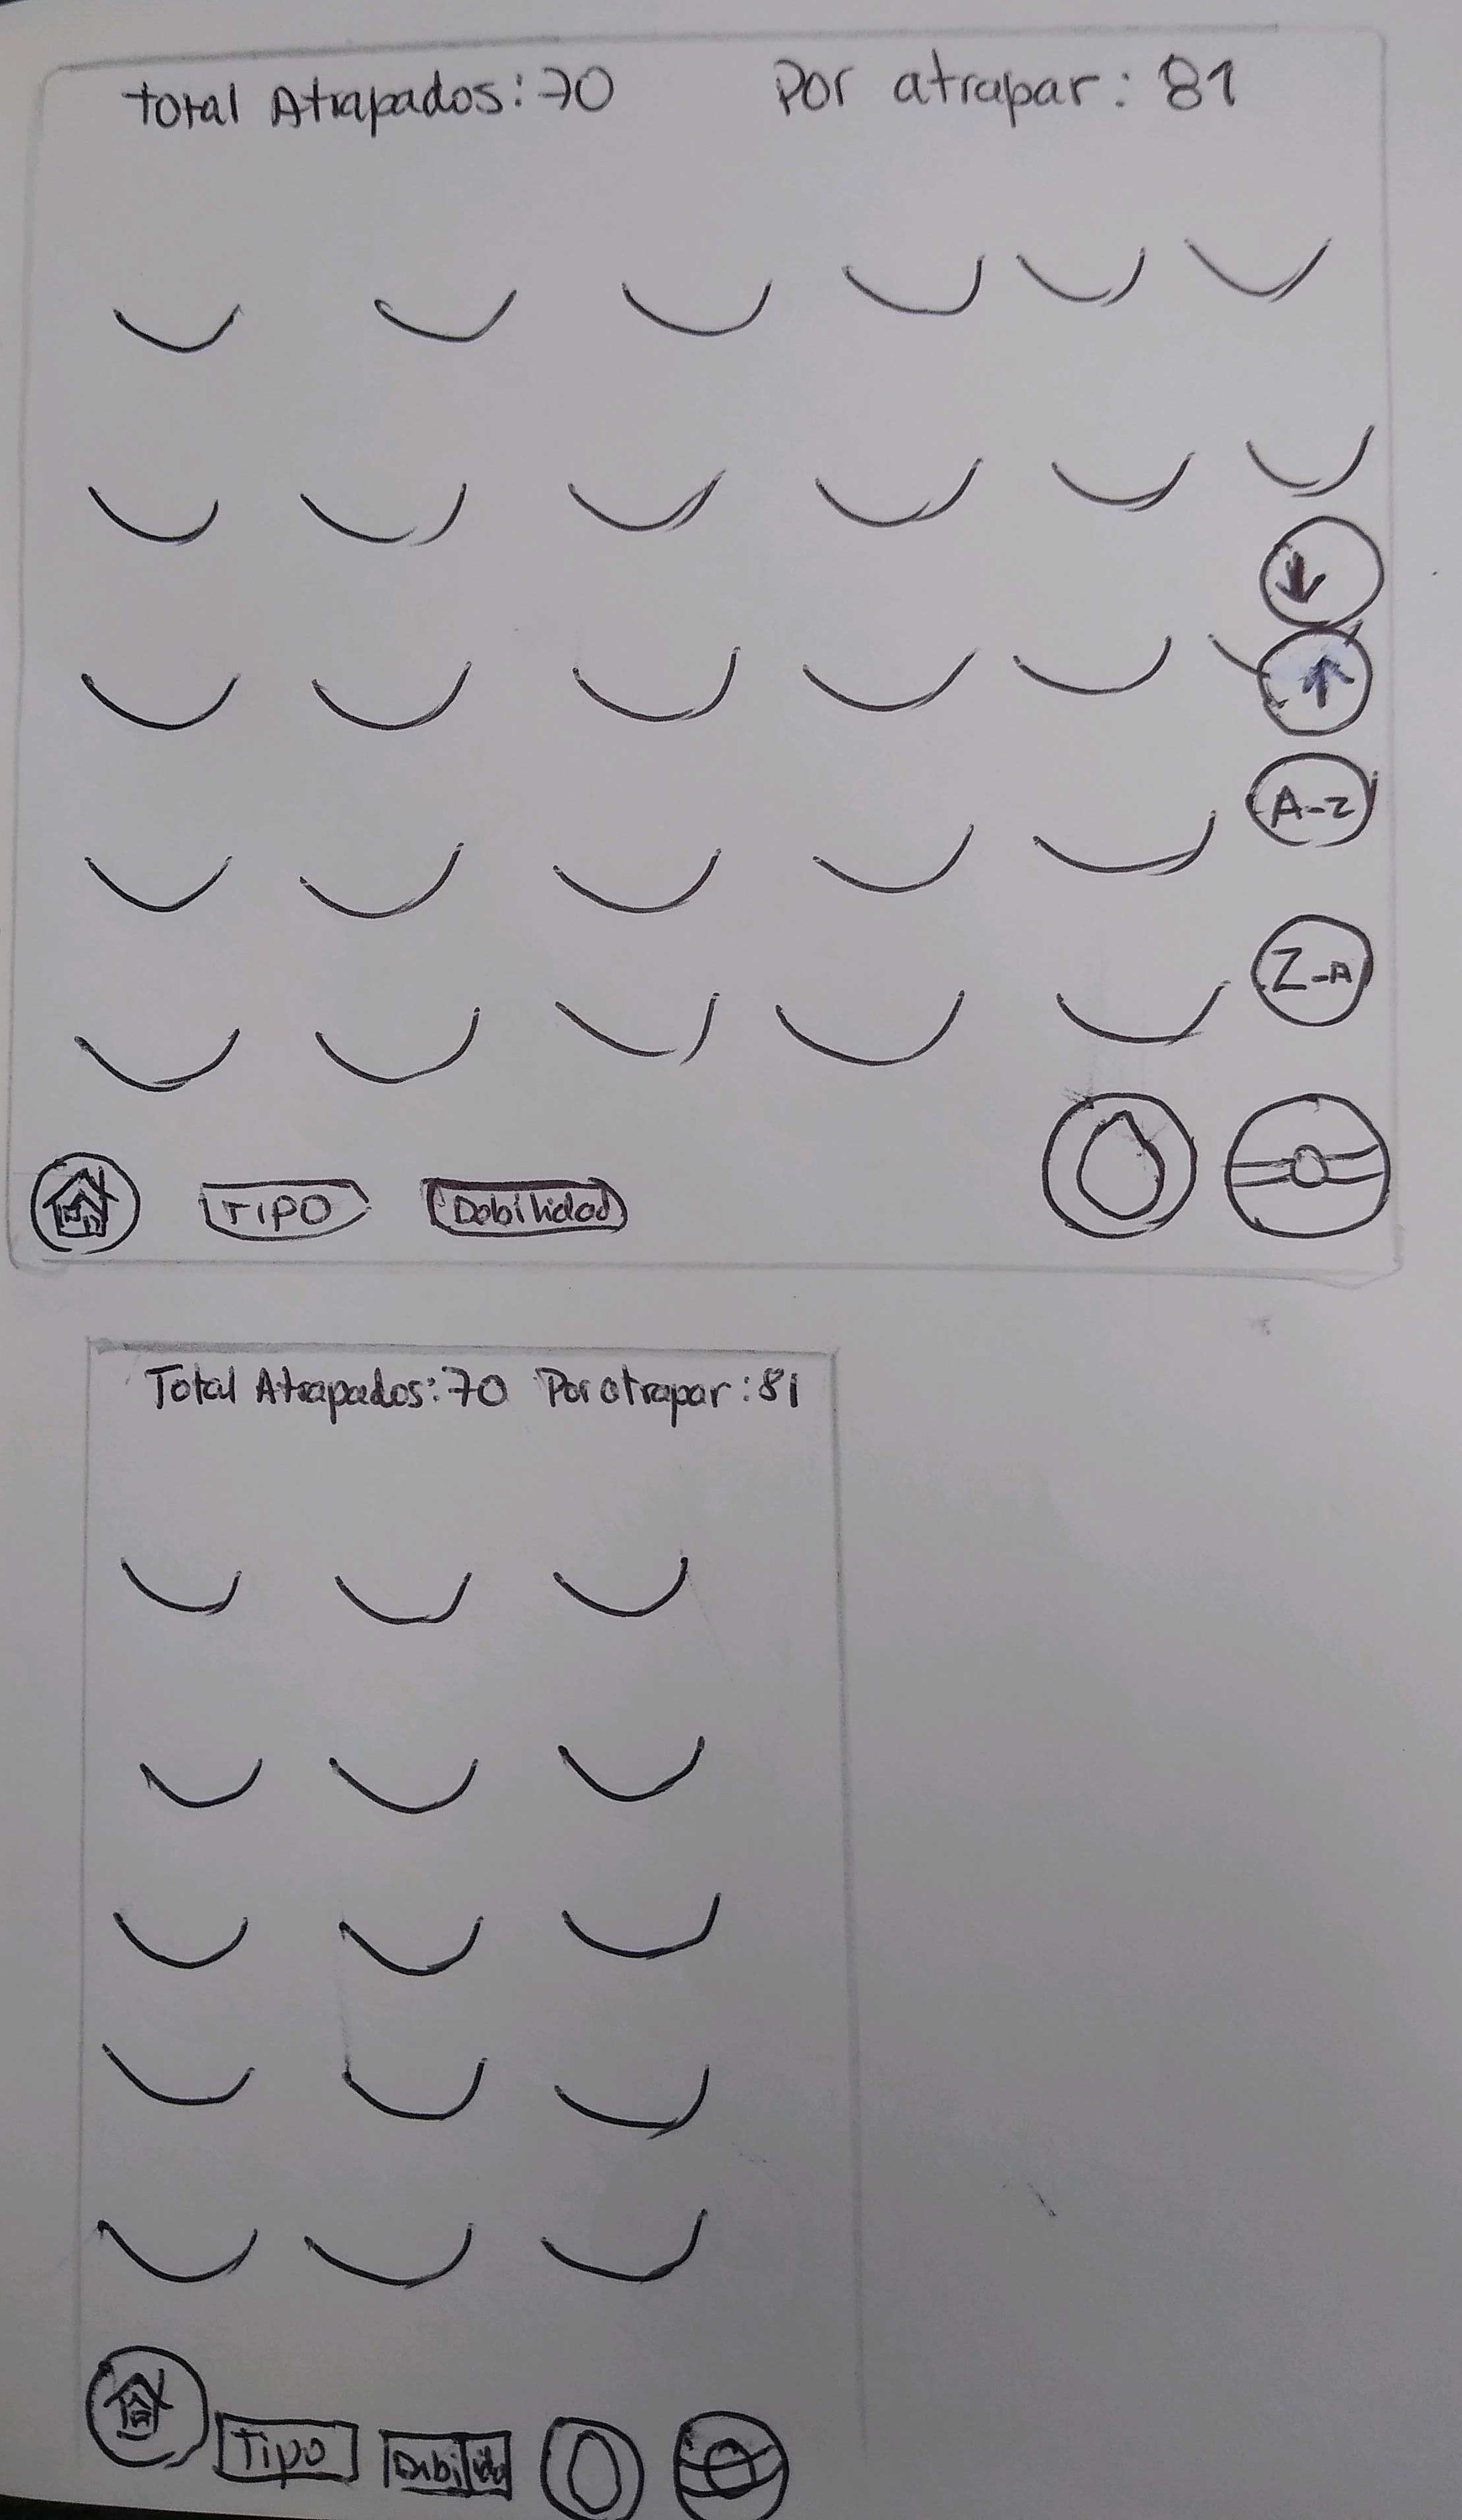 Total Atrapados: 70 Por atrapar: 81
A-Z
Z-A
TIPO Debilidad
Total Atrapados: 70 Por atrapar: 81
Tipo